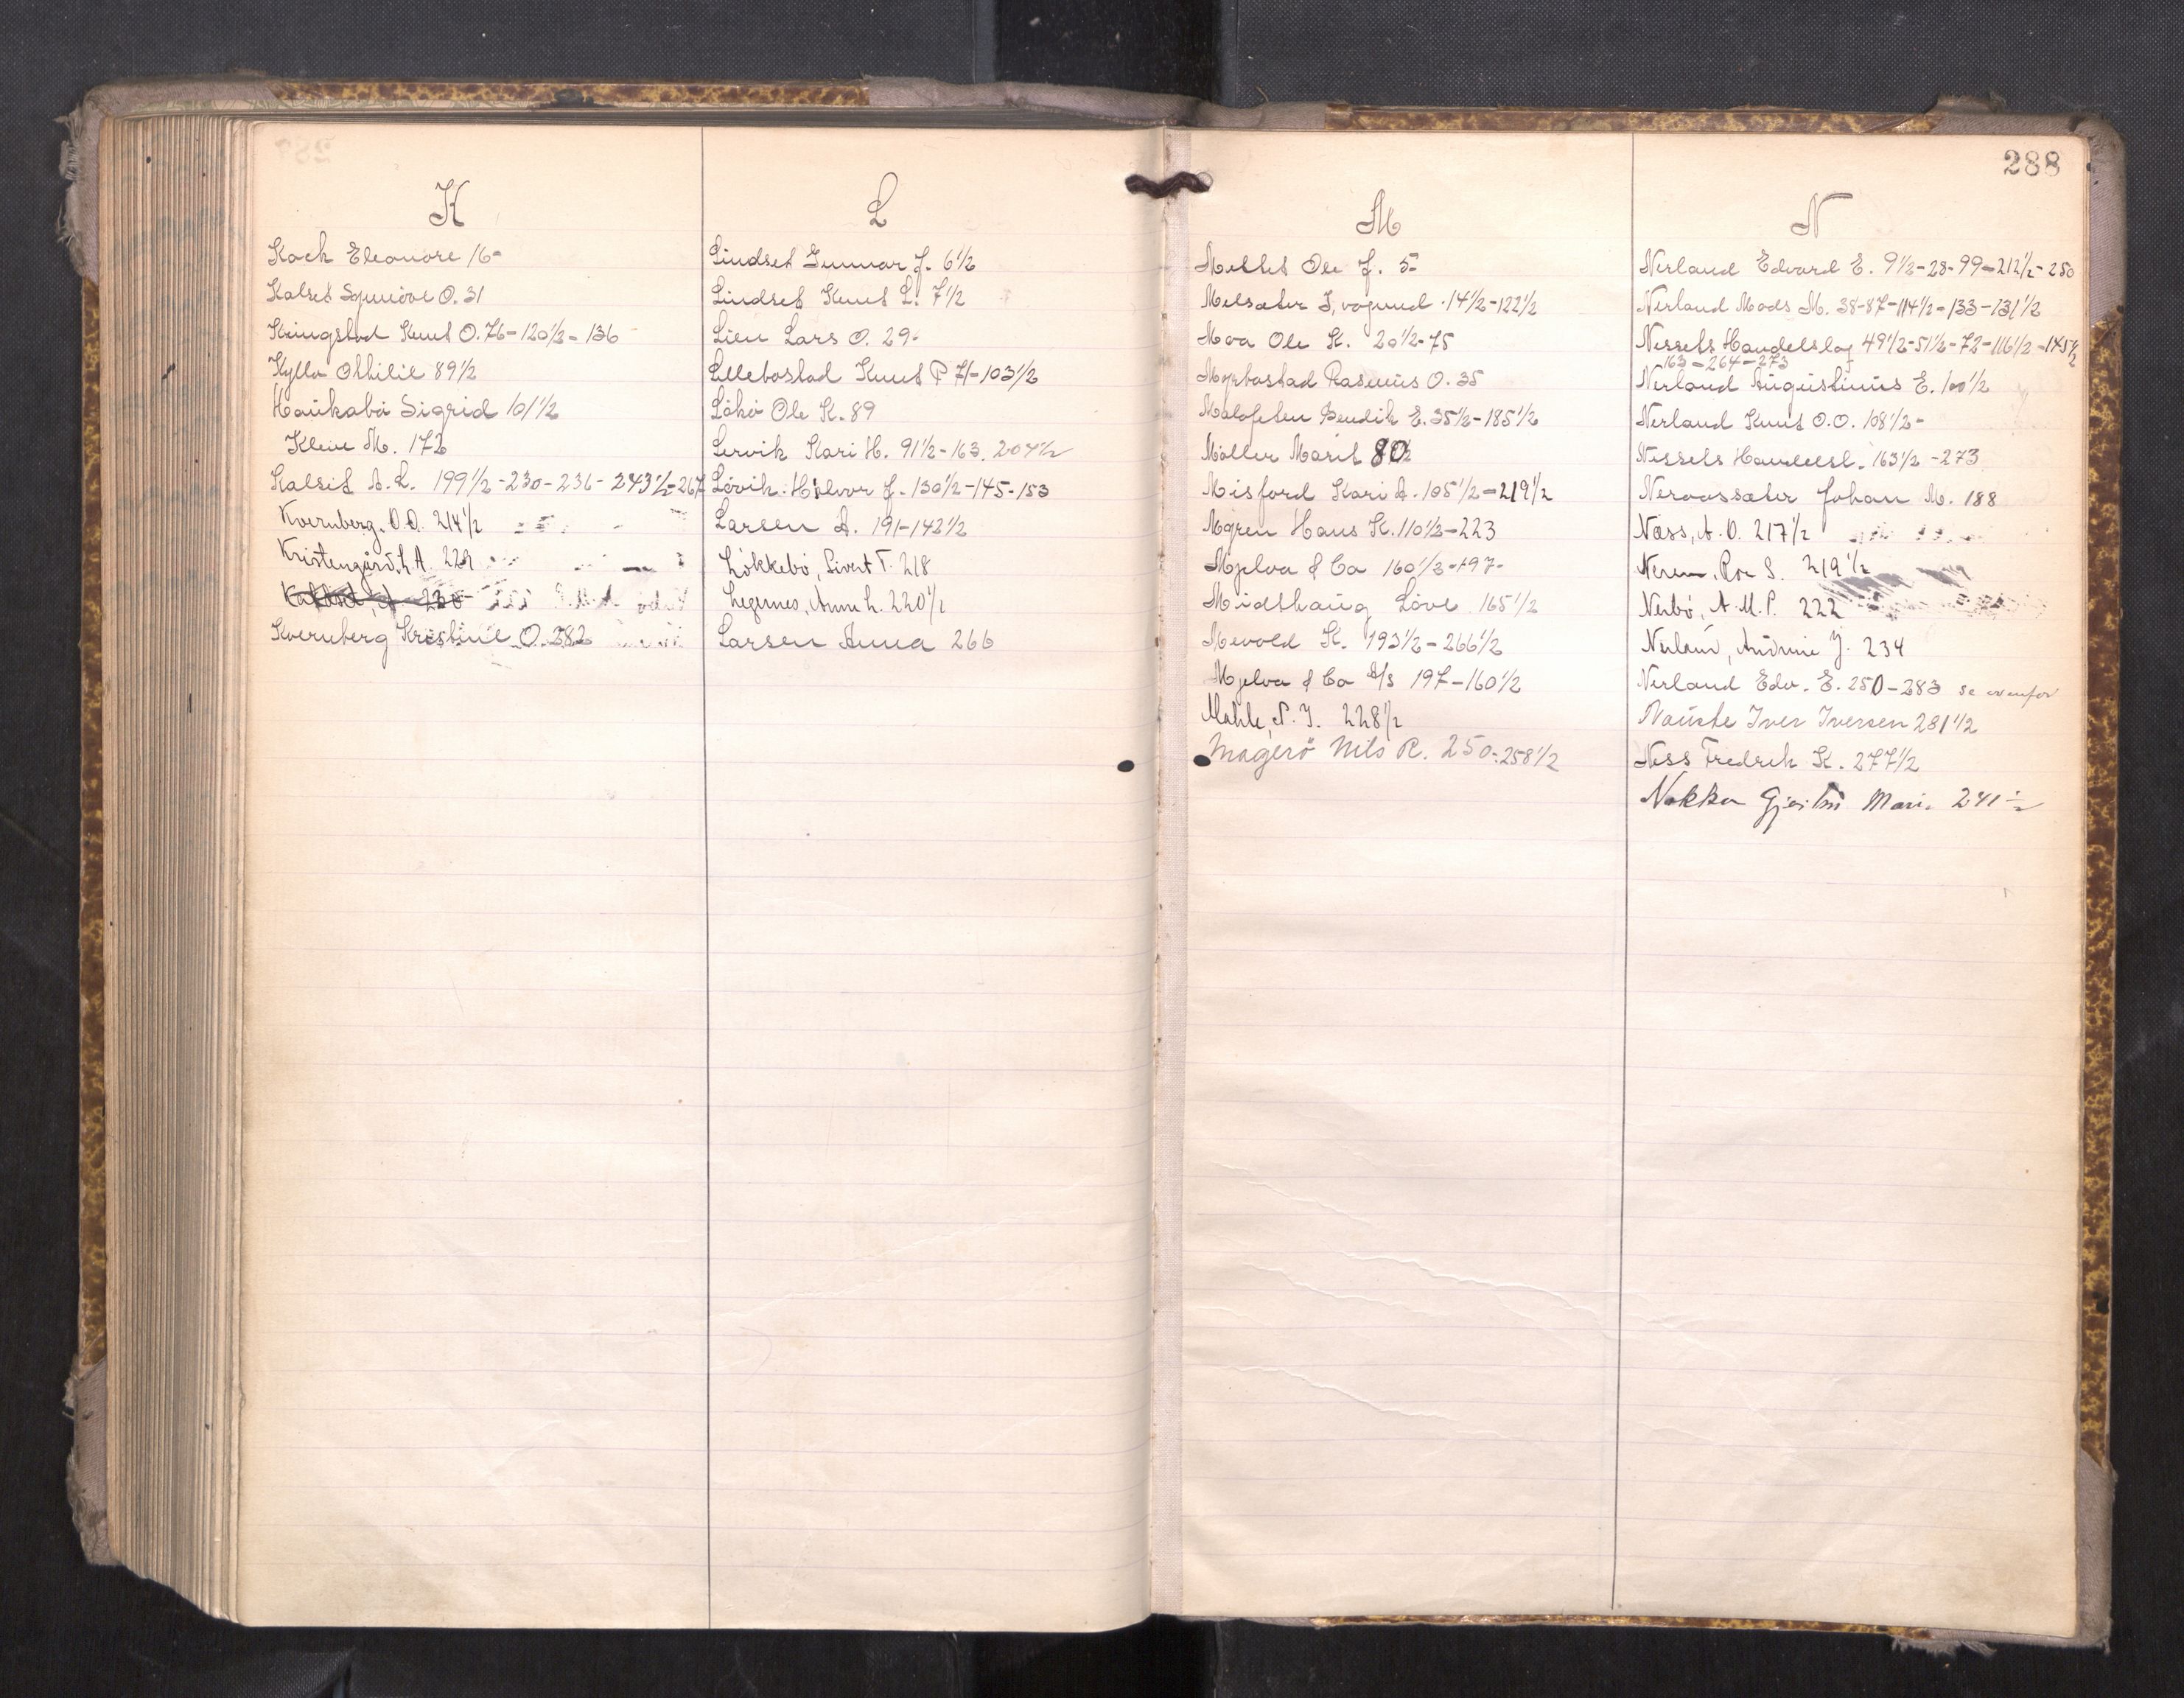 K
Koch Eleonore 16-
Kalset Synnöve O. 31
Kringstad Knut O. 76-120½-136
Kylla Othilie 89½
Haukabö Sigrid 101½
Kleive M. 172
Kalset A. L. 199½-230-236-243½-267
Kvernberg, O.O. 214½
Kristengård, L A. 229
Kvernberg Kristine O. 282
L
Lindset Gunnar J. 6½
Lindset Knut L. 7½
Lien Lars O. 29-
Lillebostad Knut P 71-103½
Ole K. 89
Lervik Kari H. 91½-163. 204½
Lövik Halvor J. 130½-145-153
Larsen A. 191-142½
Lökkebö, Sivert T. 218
Legernes, Anne L. 220½
Larsen Anna 266
288
M
Meltet Ole J. 5-
Melsæter 14½-122½
Moa Ole K. 20½-75
Myrbostad Rasmus O. 35
Malofeten Bendik E. 35½-185½
Möller Marit 80½
Misfjord Kari A. 105½-219½
Myren Hans K. 110½-223
Mjelva & Co 160½-197-
Midthaug Löve 165½
Mevold K. 193½-266½
Mjelva & Co A/s 197-160½
Mahle, P. J. 228½
Magerö Nils R. 250-258½
N
Nerland Edvard E. 9½-28-99-212½-250
Nerland Mads M. 38-87-114½-133-131½
Nessets Handelslag 49½-51½-72-116½-145½
163-264-273
Nerland Augustinus E. 100½
Nerland Knut O.O. 108½-
Nessets Handelsl. 163½-273
Neraassæter Johan M. 188
Næss, A. O. 217½
Neren, Roe S. 219½
Nerbö, A. M. P. 222
Nerland, Andrine J. 234
Nerland Edv. E. 250-283 se ovenfor
Nauste Iver Iversen 281½
Ness Fredrik K. 277½
Nakken Mari. 241½